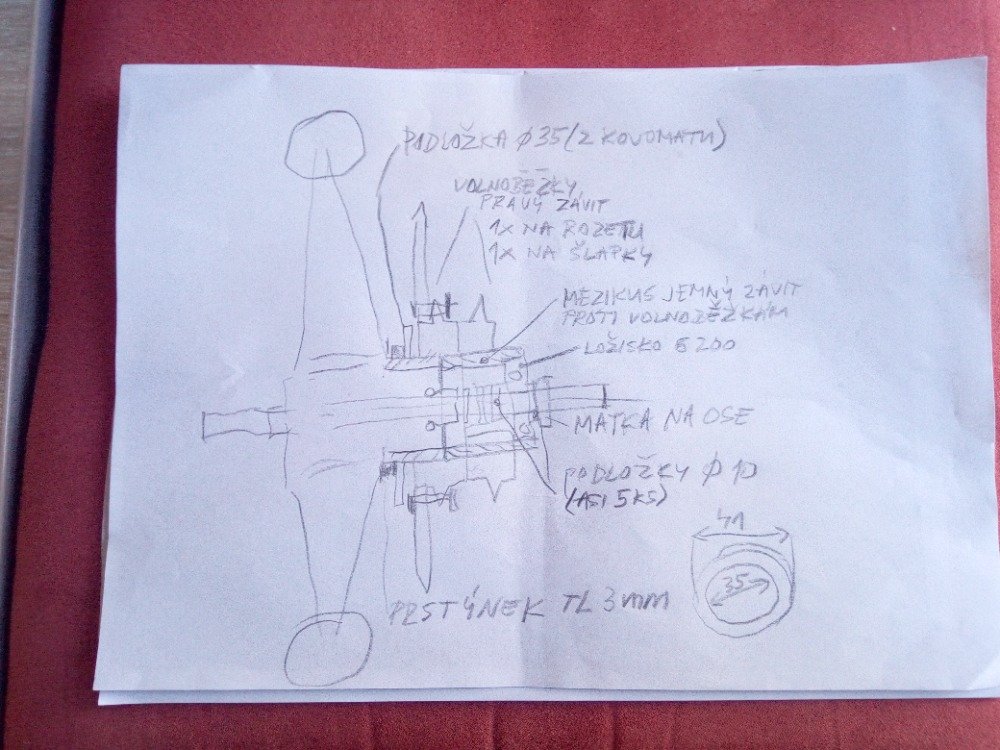 PODLOŽKA Ø35 (Z KOVOMATU)
VOLNOBĚŽKY
PRAVÝ ZÁVIT
1x NA ROZETU
1x NA ŠLAPKY
MEZIKUS JEMNÝ ZÁVIT
PROTI VOLNOBĚŽKÁM
LOŽISKO 6200
MATKA NA OSE
PODLOŽKY Ø 10
(ASI 5KS)
41
35
PRSTÝNEK TL 3mm